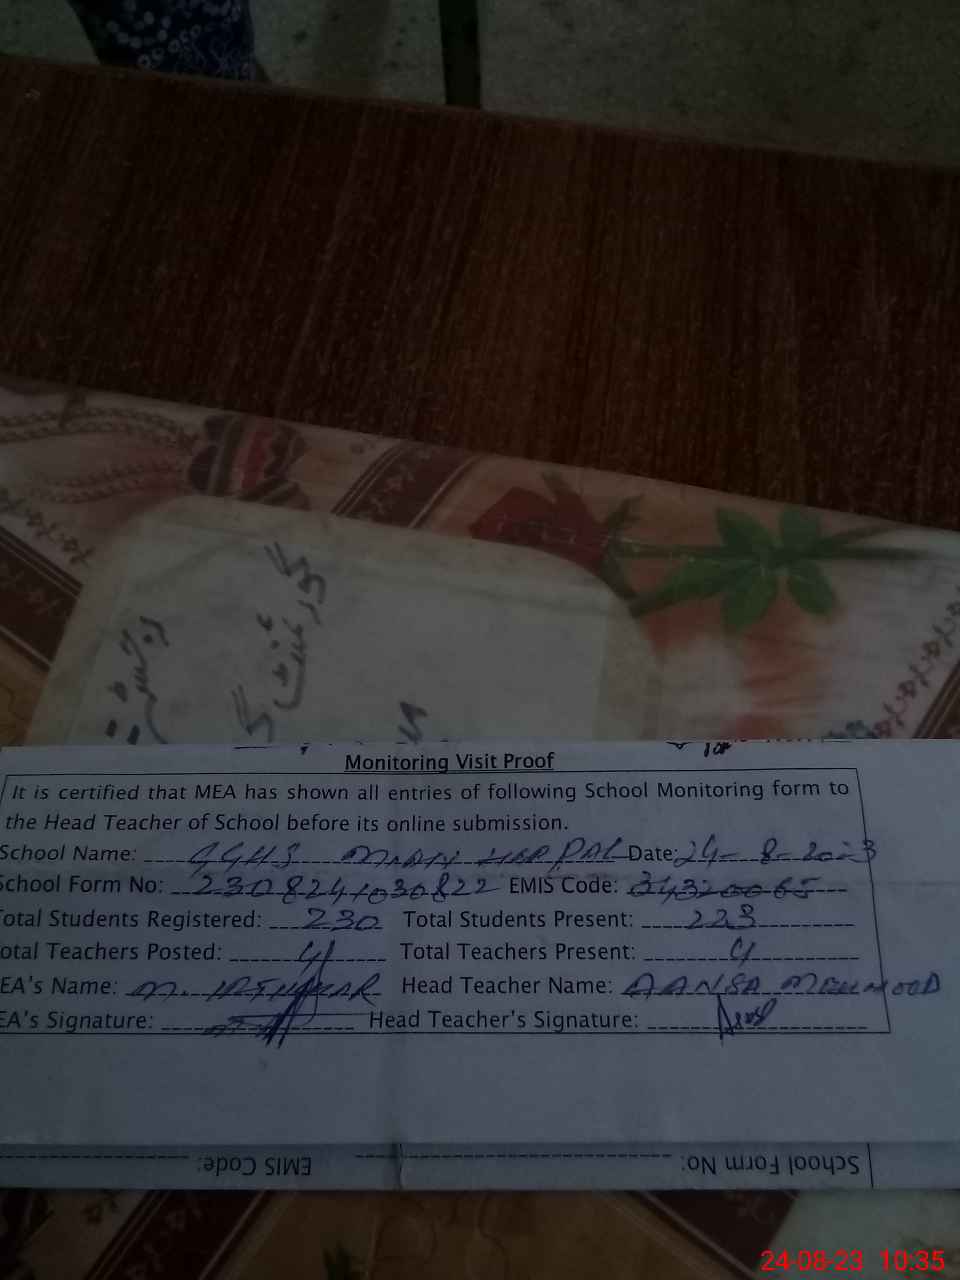 گورنمنٹ
Monitoring Visit Proof
It is certified that MEA has shown all entries of following School Monitoring form to
the Head Teacher of School before its online submission.
School Name: GGHS MIAN HARPAL Date: 24-8-2023
School Form No: 2308241030822 EMIS Code: 34320065
Total Students Registered: 230 Total Students Present: 223
otal Teachers Posted: 4 Total Teachers Present: 4
EA's Name: M. IFTIKHAR Head Teacher Name: AANSA MEHMOOD
EA's Signature: Head Teacher's Signature:
School Form No: EMIS Code:
24-08-23 10:35